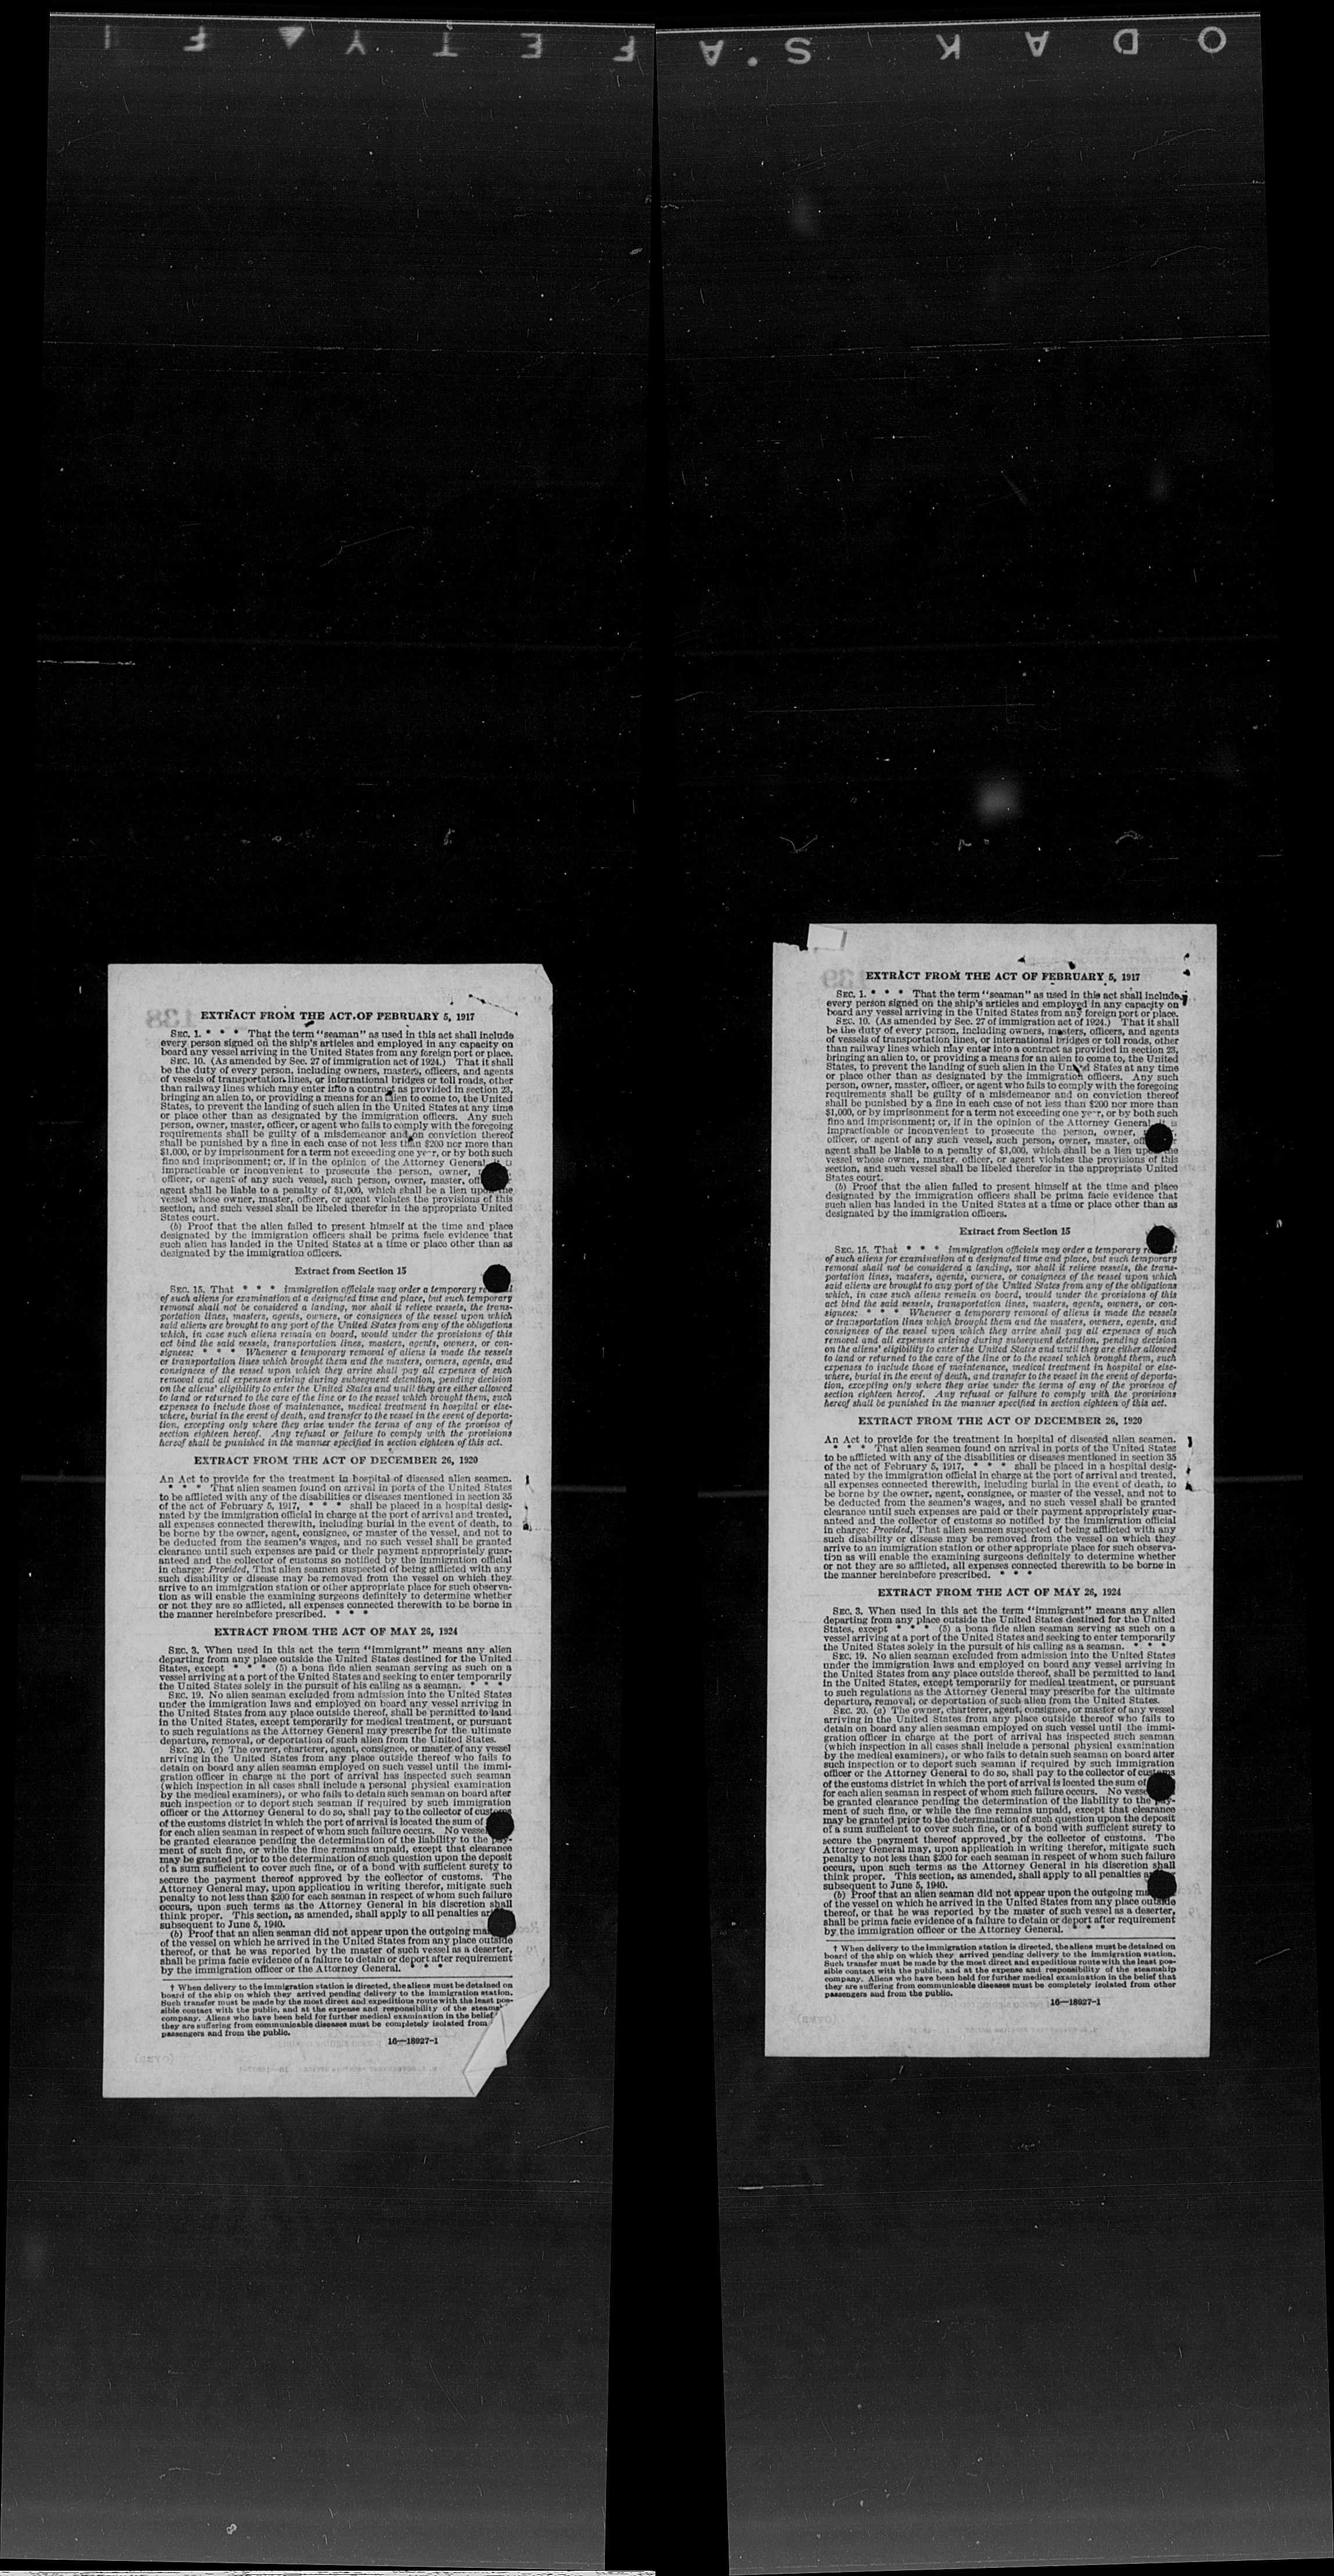 ODAK SAFETY ▲ FI
138
EXTRACT FROM THE ACT OF FEBRUARY 5, 1917
SEC. 1. * * * That the term “seaman” as used in this act shall include
every person signed on the ship's articles and employed in any capacity on
board any vessel arriving in the United States from any foreign port or place.
SEC. 10. (As amended by Sec. 27 of immigration act of 1924.) That it shall
be the duty of every person, including owners, masters, officers, and agents
of vessels of transportation lines, or international bridges or toll roads, other
than railway lines which may enter into a contract as provided in section 23,
bringing an alien to, or providing a means for an alien to come to, the United
States, to prevent the landing of such alien in the United States at any time
or place other than as designated by the immigration officers. Any such
person, owner, master, officer, or agent who fails to comply with the foregoing
requirements shall be guilty of a misdemeanor and on conviction thereof
shall be punished by a fine in each case of not less than $200 nor more than
$1,000, or by imprisonment for a term not exceeding one year, or by both such
fine and imprisonment; or, if in the opinion of the Attorney General it is
impracticable or inconvenient to prosecute the person, owner,
officer, or agent of any such vessel, such person, owner, master,
agent shall be liable to a penalty of $1,000, which shall be a lien upon the
vessel whose owner, master, officer, or agent violates the provisions of this
section, and such vessel shall be libeled therefor in the appropriate United
States court.
(b) Proof that the alien failed to present himself at the time and place
designated by the immigration officers shall be prima facie evidence that
such alien has landed in the United States at a time or place other than as
designated by the immigration officers.
Extract from Section 15
SEC. 15. That * * * immigration officials may order a temporary
of such aliens for examination at a designated time and place, but such temporary
removal shall not be considered a landing, nor shall it relieve vessels, the trans-
portation lines, masters, agents, owners, or consignees of the vessel upon which
said aliens are brought to any port of the United States from any of the obligations
which, in case such aliens remain on board, would under the provisions of this
act bind the said vessels, transportation lines, masters, agents, owners, or con-
signees: * * * Whenever a temporary removal of aliens is made the vessels
or transportation lines which brought them and the masters, owners, agents, and
consignees of the vessel upon which they arrive shall pay all expenses of such
removal and all expenses arising during subsequent detention, pending decision
on the aliens' eligibility to enter the United States and until they are either allowed
to land or returned to the care of the line or to the vessel which brought them, such
expenses to include those of maintenance, medical treatment in hospital or else-
where, burial in the event of death, and transfer to the vessel in the event of deporta-
tion, excepting only where they arise under the terms of any of the provisos of
section eighteen hereof. Any refusal or failure to comply with the provisions
hereof shall be punished in the manner specified in section eighteen of this act.
EXTRACT FROM THE ACT OF DECEMBER 26, 1920
An Act to provide for the treatment in hospital of diseased alien seamen.
* * * That alien seamen found on arrival in ports of the United States
to be afflicted with any of the disabilities or diseases mentioned in section 35
of the act of February 5, 1917, * * * shall be placed in a hospital desig-
nated by the immigration official in charge at the port of arrival and treated,
all expenses connected therewith, including burial in the event of death, to
be borne by the owner, agent, consignee, or master of the vessel, and not to
be deducted from the seamen's wages, and no such vessel shall be granted
clearance until such expenses are paid or their payment appropriately guar-
anteed and the collector of customs so notified by the immigration official
in charge: Provided, That alien seamen suspected of being afflicted with any
such disability or disease may be removed from the vessel on which they
arrive to an immigration station or other appropriate place for such observa-
tion as will enable the examining surgeons definitely to determine whether
or not they are so afflicted, all expenses connected therewith to be borne in
the manner hereinbefore prescribed. * * *
EXTRACT FROM THE ACT OF MAY 26, 1924
SEC. 3. When used in this act the term “immigrant” means any alien
departing from any place outside the United States destined for the United
States, except * * * (5) a bona fide alien seaman serving as such on a
vessel arriving at a port of the United States and seeking to enter temporarily
the United States solely in the pursuit of his calling as a seaman. * * *
SEC. 19. No alien seaman excluded from admission into the United States
under the immigration laws and employed on board any vessel arriving in
the United States from any place outside thereof, shall be permitted to land
in the United States, except temporarily for medical treatment, or pursuant
to such regulations as the Attorney General may prescribe for the ultimate
departure, removal, or deportation of such alien from the United States.
SEC. 20. (a) The owner, charterer, agent, consignee, or master of any vessel
arriving in the United States from any place outside thereof who fails to
detain on board any alien seaman employed on such vessel until the immi-
gration officer in charge at the port of arrival has inspected such seaman
(which inspection in all cases shall include a personal physical examination
by the medical examiners), or who fails to detain such seaman on board after
such inspection or to deport such seaman if required by such immigration
officer or the Attorney General to do so, shall pay to the collector of customs
of the customs district in which the port of arrival is located the sum of
for each alien seaman in respect of whom such failure occurs. No vessel
be granted clearance pending the determination of the liability to the pay-
ment of such fine, or while the fine remains unpaid, except that clearance
may be granted prior to the determination of such question upon the deposit
of a sum sufficient to cover such fine, or of a bond with sufficient surety to
secure the payment thereof approved by the collector of customs. The
Attorney General may, upon application in writing therefor, mitigate such
penalty to not less than $200 for each seaman in respect of whom such failure
occurs, upon such terms as the Attorney General in his discretion shall
think proper. This section, as amended, shall apply to all penalties
subsequent to June 5, 1940.
(b) Proof that an alien seaman did not appear upon the outgoing
of the vessel on which he arrived in the United States from any place outside
thereof, or that he was reported by the master of such vessel as a deserter,
shall be prima facie evidence of a failure to detain or deport after requirement
by the immigration officer or the Attorney General. * * *
† When delivery to the immigration station is directed, the aliens must be detained on
board of the ship on which they arrived pending delivery to the immigration station.
Such transfer must be made by the most direct and expeditious route with the least pos-
sible contact with the public, and at the expense and responsibility of the
company. Aliens who have been held for further medical examination in the belief
they are suffering from communicable diseases must be completely isolated from
passengers and from the public.
16—18927-1
139
EXTRACT FROM THE ACT OF FEBRUARY 5, 1917
SEC. 1. * * * That the term “seaman” as used in this act shall include
every person signed on the ship's articles and employed in any capacity on
board any vessel arriving in the United States from any foreign port or place.
SEC. 10. (As amended by Sec. 27 of immigration act of 1924.) That it shall
be the duty of every person, including owners, masters, officers, and agents
of vessels of transportation lines, or international bridges or toll roads, other
than railway lines which may enter into a contract as provided in section 23,
bringing an alien to, or providing a means for an alien to come to, the United
States, to prevent the landing of such alien in the United States at any time
or place other than as designated by the immigration officers. Any such
person, owner, master, officer, or agent who fails to comply with the foregoing
requirements shall be guilty of a misdemeanor and on conviction thereof
shall be punished by a fine in each case of not less than $200 nor more than
$1,000, or by imprisonment for a term not exceeding one year, or by both such
fine and imprisonment; or, if in the opinion of the Attorney General it is
impracticable or inconvenient to prosecute the person, owner,
officer, or agent of any such vessel, such person, owner, master,
agent shall be liable to a penalty of $1,000, which shall be a lien upon the
vessel whose owner, master, officer, or agent violates the provisions of this
section, and such vessel shall be libeled therefor in the appropriate United
States court.
(b) Proof that the alien failed to present himself at the time and place
designated by the immigration officers shall be prima facie evidence that
such alien has landed in the United States at a time or place other than as
designated by the immigration officers.
Extract from Section 15
SEC. 15. That * * * immigration officials may order a temporary
of such aliens for examination at a designated time and place, but such temporary
removal shall not be considered a landing, nor shall it relieve vessels, the trans-
portation lines, masters, agents, owners, or consignees of the vessel upon which
said aliens are brought to any port of the United States from any of the obligations
which, in case such aliens remain on board, would under the provisions of this
act bind the said vessels, transportation lines, masters, agents, owners, or con-
signees: * * * Whenever a temporary removal of aliens is made the vessels
or transportation lines which brought them and the masters, owners, agents, and
consignees of the vessel upon which they arrive shall pay all expenses of such
removal and all expenses arising during subsequent detention, pending decision
on the aliens' eligibility to enter the United States and until they are either allowed
to land or returned to the care of the line or to the vessel which brought them, such
expenses to include those of maintenance, medical treatment in hospital or else-
where, burial in the event of death, and transfer to the vessel in the event of deporta-
tion, excepting only where they arise under the terms of any of the provisos of
section eighteen hereof. Any refusal or failure to comply with the provisions
hereof shall be punished in the manner specified in section eighteen of this act.
EXTRACT FROM THE ACT OF DECEMBER 26, 1920
An Act to provide for the treatment in hospital of diseased alien seamen.
* * * That alien seamen found on arrival in ports of the United States
to be afflicted with any of the disabilities or diseases mentioned in section 35
of the act of February 5, 1917, * * * shall be placed in a hospital desig-
nated by the immigration official in charge at the port of arrival and treated,
all expenses connected therewith, including burial in the event of death, to
be borne by the owner, agent, consignee, or master of the vessel, and not to
be deducted from the seamen's wages, and no such vessel shall be granted
clearance until such expenses are paid or their payment appropriately guar-
anteed and the collector of customs so notified by the immigration official
in charge: Provided, That alien seamen suspected of being afflicted with any
such disability or disease may be removed from the vessel on which they
arrive to an immigration station or other appropriate place for such observa-
tion as will enable the examining surgeons definitely to determine whether
or not they are so afflicted, all expenses connected therewith to be borne in
the manner hereinbefore prescribed. * * *
EXTRACT FROM THE ACT OF MAY 26, 1924
SEC. 3. When used in this act the term “immigrant” means any alien
departing from any place outside the United States destined for the United
States, except * * * (5) a bona fide alien seaman serving as such on a
vessel arriving at a port of the United States and seeking to enter temporarily
the United States solely in the pursuit of his calling as a seaman. * * *
SEC. 19. No alien seaman excluded from admission into the United States
under the immigration laws and employed on board any vessel arriving in
the United States from any place outside thereof, shall be permitted to land
in the United States, except temporarily for medical treatment, or pursuant
to such regulations as the Attorney General may prescribe for the ultimate
departure, removal, or deportation of such alien from the United States.
SEC. 20. (a) The owner, charterer, agent, consignee, or master of any vessel
arriving in the United States from any place outside thereof who fails to
detain on board any alien seaman employed on such vessel until the immi-
gration officer in charge at the port of arrival has inspected such seaman
(which inspection in all cases shall include a personal physical examination
by the medical examiners), or who fails to detain such seaman on board after
such inspection or to deport such seaman if required by such immigration
officer or the Attorney General to do so, shall pay to the collector of customs
of the customs district in which the port of arrival is located the sum of
for each alien seaman in respect of whom such failure occurs. No vessel
be granted clearance pending the determination of the liability to the pay-
ment of such fine, or while the fine remains unpaid, except that clearance
may be granted prior to the determination of such question upon the deposit
of a sum sufficient to cover such fine, or of a bond with sufficient surety to
secure the payment thereof approved by the collector of customs. The
Attorney General may, upon application in writing therefor, mitigate such
penalty to not less than $200 for each seaman in respect of whom such failure
occurs, upon such terms as the Attorney General in his discretion shall
think proper. This section, as amended, shall apply to all penalties
subsequent to June 5, 1940.
(b) Proof that an alien seaman did not appear upon the outgoing
of the vessel on which he arrived in the United States from any place outside
thereof, or that he was reported by the master of such vessel as a deserter,
shall be prima facie evidence of a failure to detain or deport after requirement
by the immigration officer or the Attorney General. * * *
† When delivery to the immigration station is directed, the aliens must be detained on
board of the ship on which they arrived pending delivery to the immigration station.
Such transfer must be made by the most direct and expeditious route with the least pos-
sible contact with the public, and at the expense and responsibility of the steamship
company. Aliens who have been held for further medical examination in the belief that
they are suffering from communicable diseases must be completely isolated from other
passengers and from the public.
16—18927-1